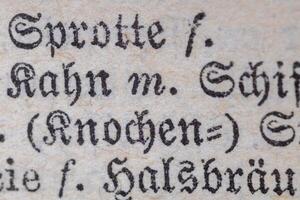 Sprotte f.
Kahn m. Schif
. (Knochen=) S
ie f. Halsbräu